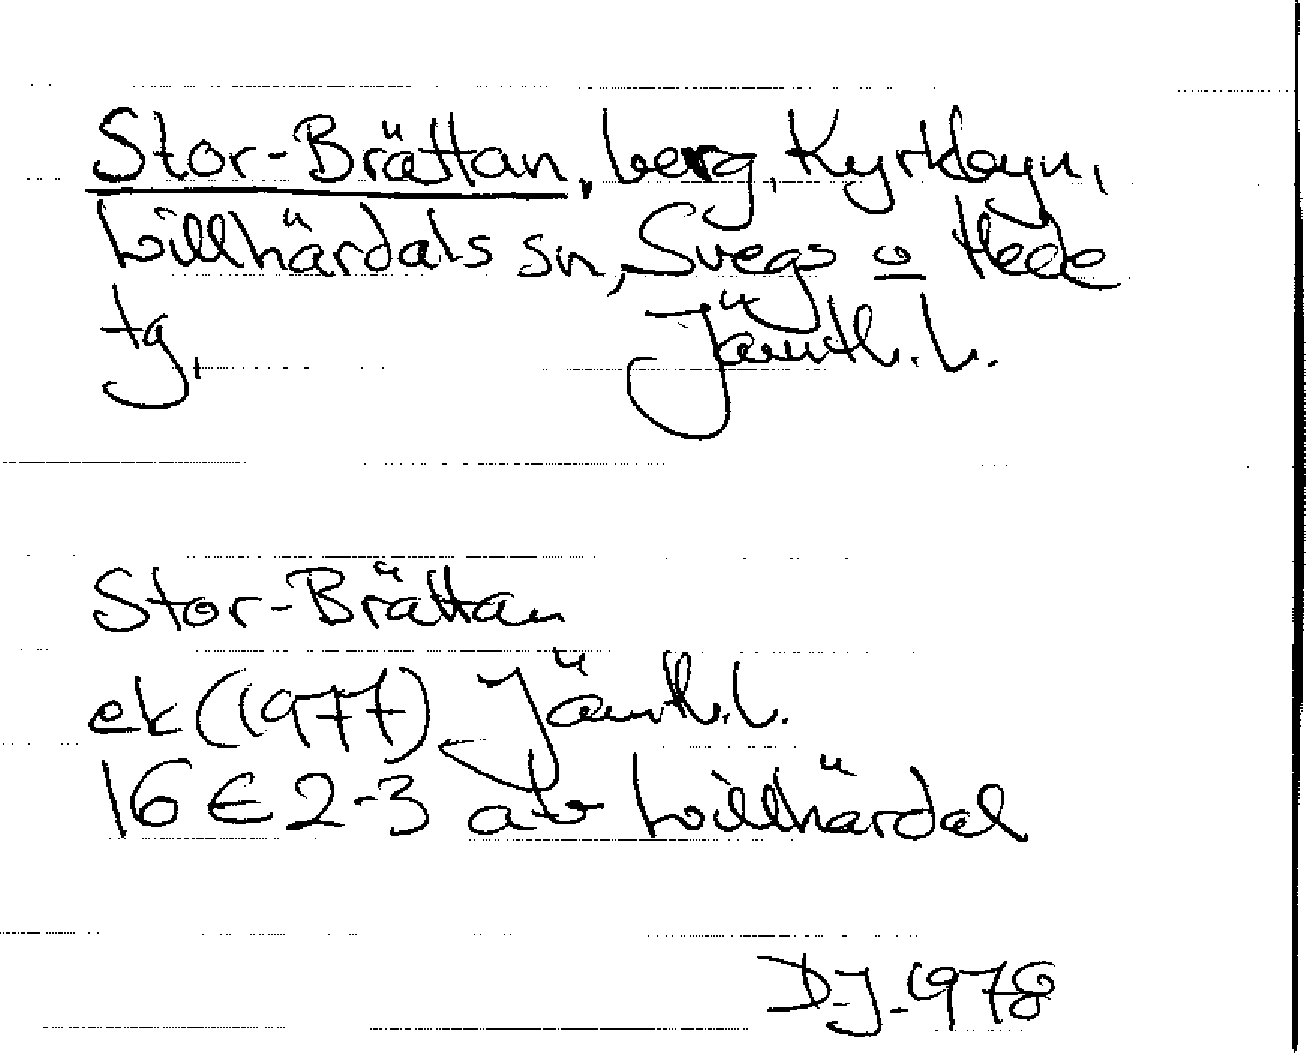 Stor-Brättan, berg, Kyrkbyn,
Lillhärdals sn, Svegs o Hede
tg, Jämtl. l.
Stor-Brättan
ek (1977) Jämtl. l.
16 E 2-3 a b Lillhärdal
D.J. 1978